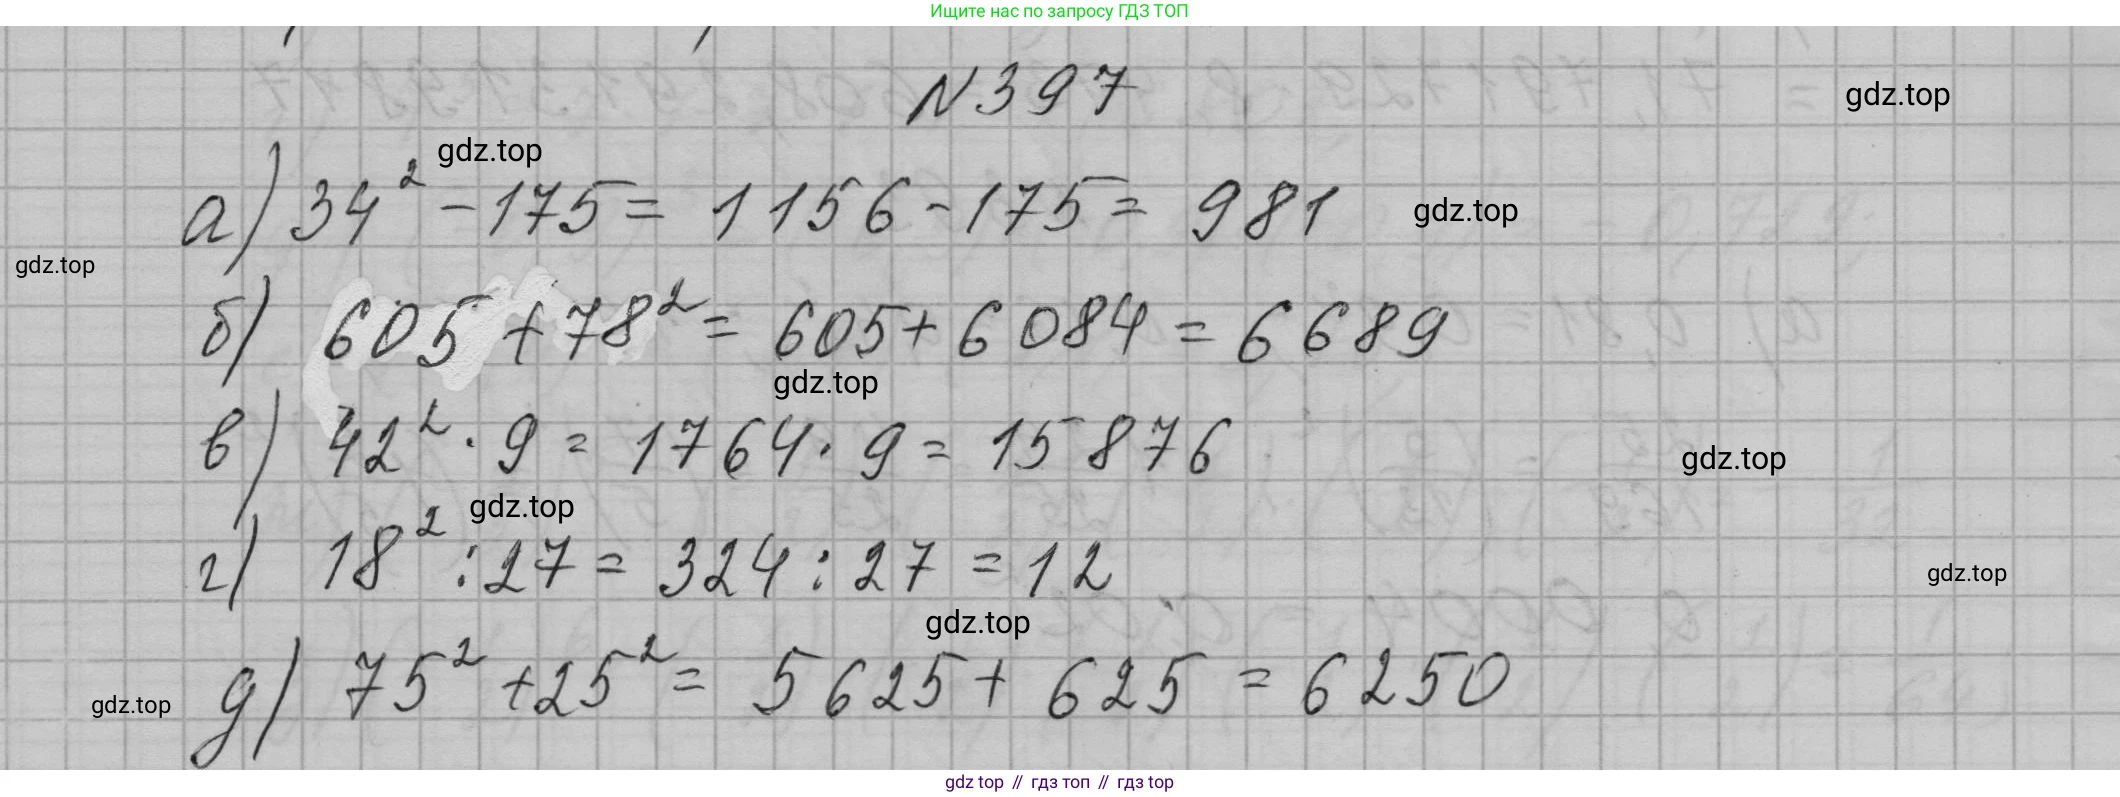 Ищите нас по запросу ГДЗ ТОП
N397
gdz.top
gdz.top
а) 34² - 175 = 1156 - 175 = 981
gdz.top
gdz.top
б) 605 + 78² = 605 + 6084 = 6689
gdz.top
в) 42² · 9 = 1764 · 9 = 15876
gdz.top
gdz.top
г) 18² : 27 = 324 : 27 = 12
gdz.top
gdz.top
д) 75² + 25² = 5625 + 625 = 6250
gdz.top
gdz top // гдз топ // гдз top